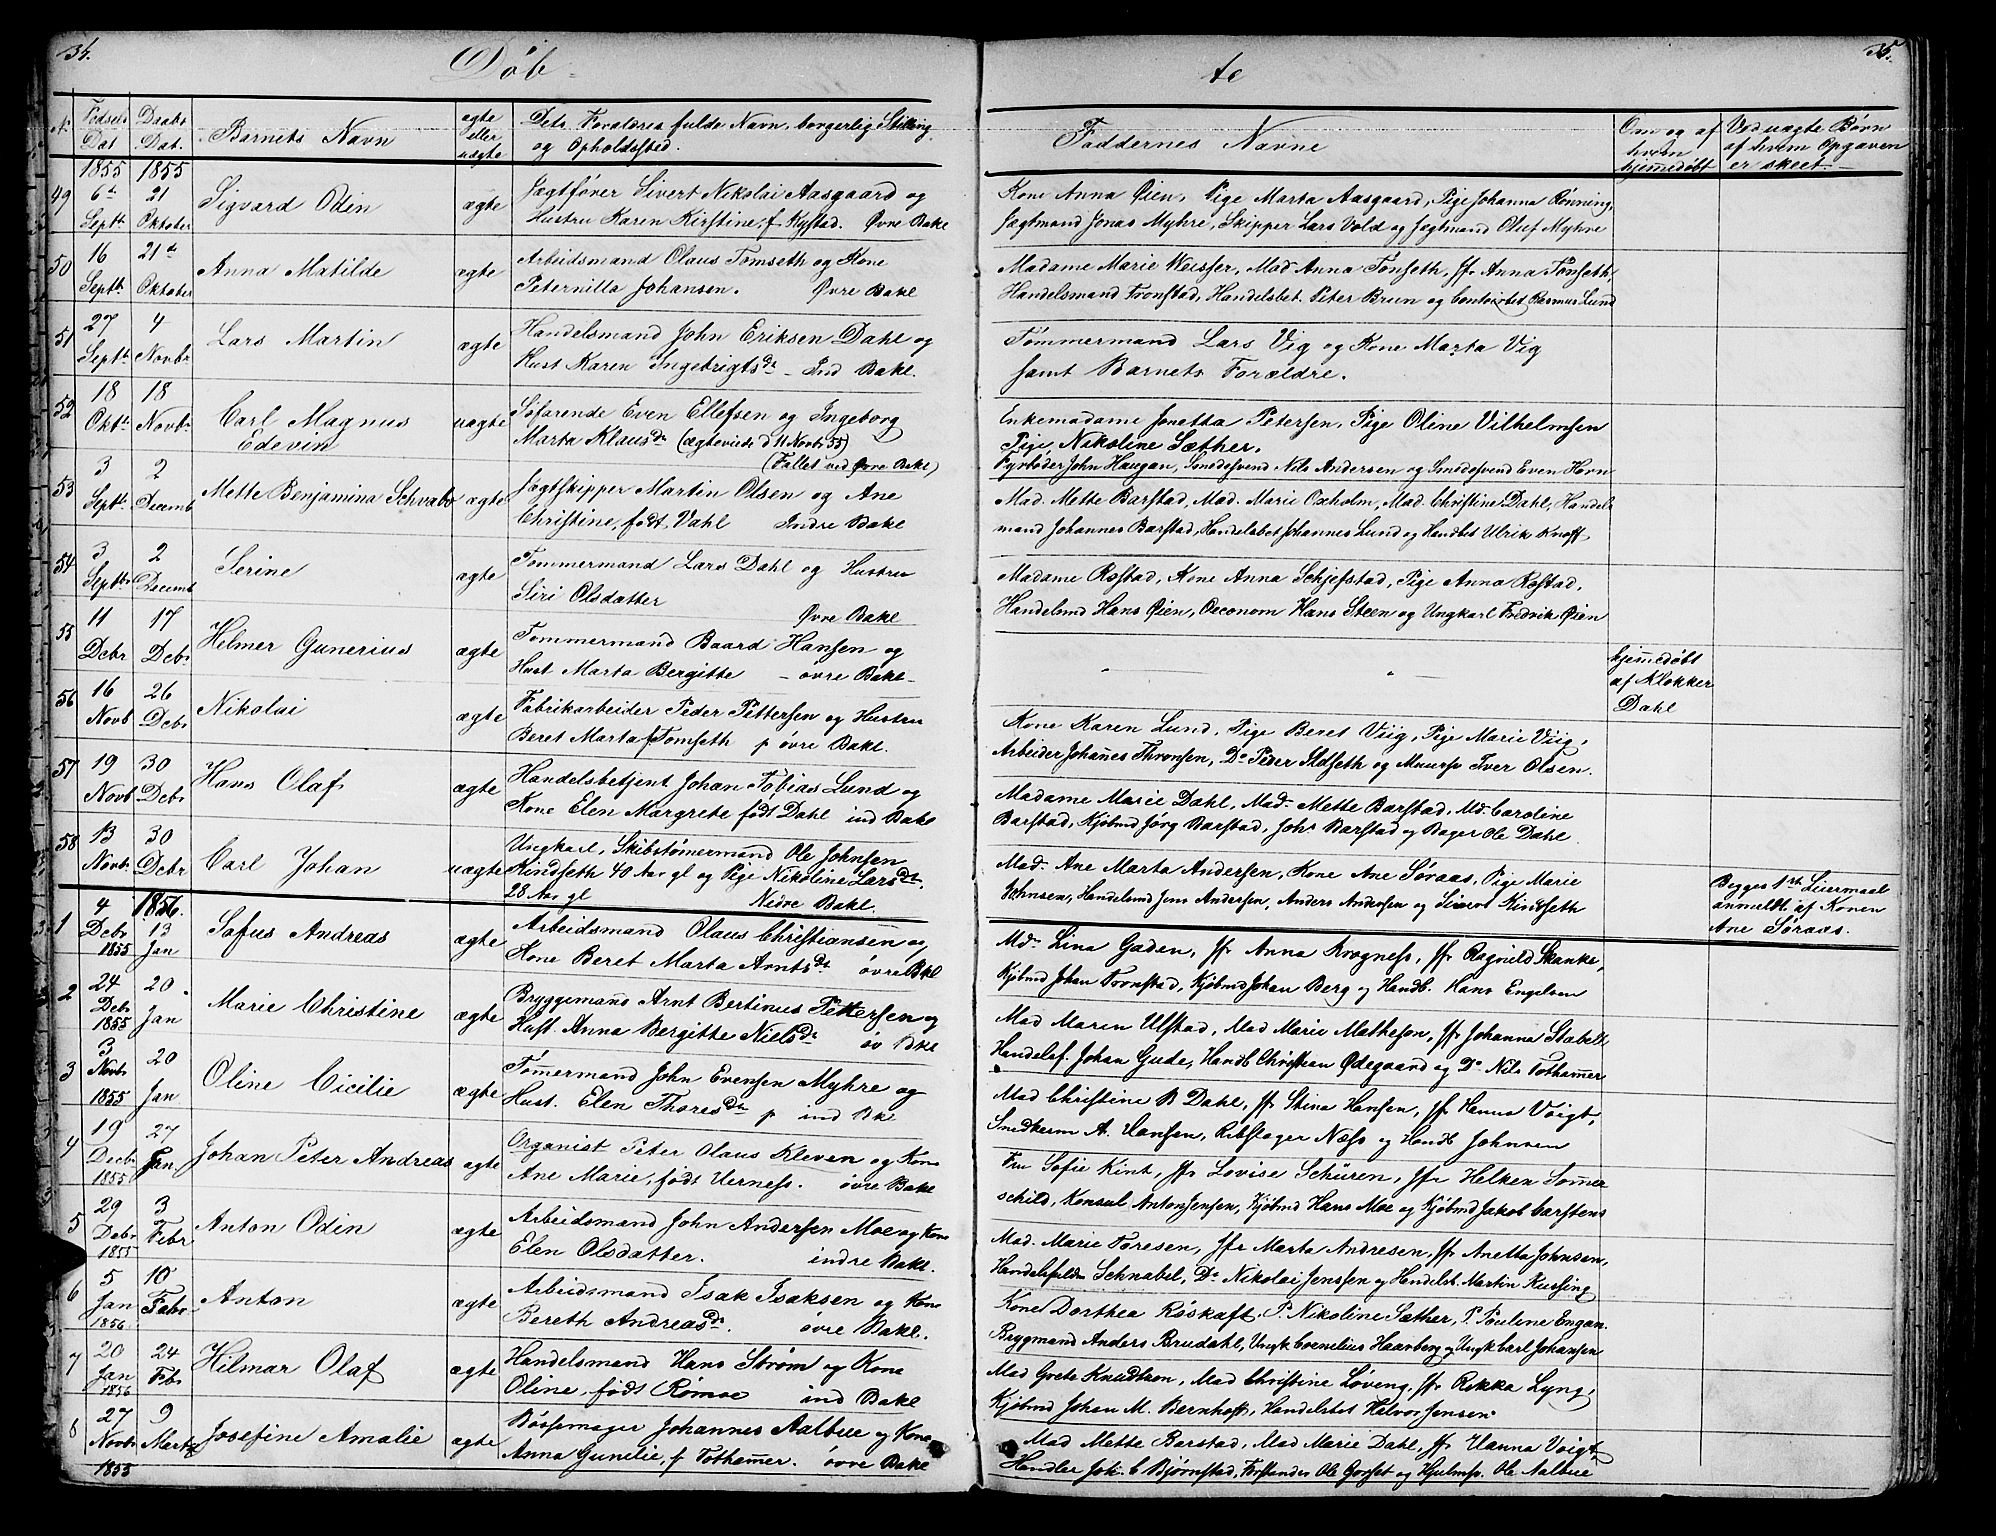 34.
Døb
N.
Fødsels Dat
Daabs Dat.
Barnets Navn
ægte eller uægte
Dets Forældres fulde Navn, borgerlig Stilling
og Opholdssted.
1855 1855
49 6te Septbr 21 Oktober Sigvard Odin ægte Jægtfører Sivert Nikolai Aasgaard og
Hustru Karen Kirstine, f. Rystad. Øvre Bakl
50 16 Septbr 21de Oktober Anna Matilde ægte Arbeidsmand Olaus Tomseth og Kone
Peternilla Johansen. Øvre Bakl
51 27 Septbr 4 Novbr Lars Martin ægte Handelsmand John Eriksen Dahl og
Hust Karen Ingebrigtsdr - Ind Bakl.
52 18 Oktbr 18 Novbr Carl Magnus
Edevin uægte Søfarende Even Ellefsen og Ingeborg
Marta Klausdr (ægteviede d 11 Novbr 55)
(Fallet ved Øvre Bakl)
53 3 Septbr 2 Decemb Mette Benjamina Schvabo ægte Jægtskipper Martin Olsen og Ane
Christine, født Vahl Indre Bakl
54 3 Septbr 2 Decemb Serine ægte Tømmermand Lars Dahl og Hustru
Siri Olsdatter Øvre Bakl
55 11 Debr 17 Debr Helmer Gunerius ægte Tømmermand Baard Hansen og
Hust Marta Bergitte - øvre Bakl-
56 16 Novb 26 Debr Nikolai ægte Fabrikarbeider Peder Pettersen og Hustru
Beret Marta f Tomseth p øvre Bakl.
57 19 Novb 30 Debr Hans Olaf ægte Handelsbetjent Johan Tobias Lund og
Kone Elen Margrete født Dahl ind Bakl
58 13 Novbr 30 Debr Carl Johan uægte Ungkarl, Skibstømermand Ole Johnsen
Kindseth 40 Aar gl og Pige Nikoline Larsdr.
28 Aar gl Nedre Bakl.
1856.
1 4 Debr 1855 13 Jan Sofus Andreas ægte Arbeidsmand Olaus Christiansen og
Kone Beret Marta Arntsdr øvre Bkl
2 24 Debr 1855 20 Jan Marie Christine ægte Bryggemand Arnt Bertinus Pettersen og
Hust Anna Bergitte Nielsdr øv Bkl
3 3 Novbr 1855 20 Jan Oline Cicilie ægte Tømermand John Evensen Myhre og
Hust. Elen Thoresdtr p ind Bk
4 19 Decbr 1855 27 Jan Johan Peter Andreas ægte Organist Peter Olaus Kleven og Kone
Ane Marie, født Verness. øvre Bakl
5 29 Debr 1855 3 Febr Anton Odin ægte Arbeidsmand John Andersen Moe og Kone
Elen Olsdatter. indre Bakl.
6 5 Jan 1856 10 Febr Anton ægte Arbeidsmand Isak Isaksen og Kone
Bereth Andreasdr. øvre Bakl.
7 20 Jan 1856 24 Fbr Hilmar Olaf ægte Handelsmand Hans Strøm og Kone
Oline, født Rømoe ind Bakl
8 27 Novbr 1855 9 Marts Josefine Amalie ægte Bøssemager Johannes Aalbue og Kone
Anna Gunilie, f Tothammer. øvre Bakl
35.
te
Faddernes Navne
Om og af hvem hjemmedøbt
Ved uægte Børn af hvem Opgaven er skeet.
Kone Anna Øien, Pige Marta Aasgaard, Pige Johanna Rønning,
Jægtmand Jonas Myhre, Skipper Lars Vold og Jægtmand Oluf Myhre
Madame Marie Weisser, Mad Anna Tonseth, Jfr Anna Tonseth,
Handelsmand Tronstad, Handelsbet. Peter Brun og Contoirbet Rasmus Lund
Tømmermand Lars Vig og Kone Marta Vig
samt Barnets Forældre.
Enkemadame Jonetta Petersen, Pige Oline Vilhelmsen
Pige Nikoline Sæther.
Fyrbøder John Haugan, Smedesvend Nils Andersen og Smedesvend Even Horn
Mad. Mette Barstad, Mad. Marie Oxholm, Mad. Christine Dahl, Handels
mand Johannes Barstad, Handelsbet Johannes Lund og Handbet Ulrik Knoff
Madame Røstad, Kone Anna Schjefstad, Pige Anna Røstad,
Handelsmd Hans Øien, Oeconom Hans Steen og Ungkarl Fredrik Øien
" " -
hjemedøbt
af Klokker
Dahl
Kone Karen Lund, Pige Beret Viig, Pige Marie Viig,
Arbeider Johanes Thronsen, Do Peder Aldseth og Muursv Iver Olsen.
Madame Marie Dahl, Mad. Mette Barstad, Md. Caroline
Barstad, Kjøbmd Jørg Barstad, Johs Barstad og Bager Ole Dahl.
Mad. Ane Marta Andersen, Kone Ane Søraas, Pige Marie
Johnsen, Handelsmd Jens Andersen, Anders Andersen og Sivert Kindseth
Begges 1ste Leiermaal
anmeldt af Konen
Ane Søraas.
Md. Lina Gaden, Jfr Anna Kragness, Jfr Ragnild Skanke,
Kjøbmd Johan Tronstad, Kjøbmd Johan Berg og Handb. Hans Engelsen
Mad Maren Ulstad, Mad Marie Mathesen, Jfr Johanna Stabell
Handelsf. Johan Gude, Handb Christian Ødegaard og Do Nils Tothamer
Mad Christine B Dahl, Jfr Stina Hansen, Jfr Hanna Voigt,
Snedkerm A. Hansen, Rebslager Næss og Handb Johnsen
Fru Sofie Kint, Jfr Lovise Schüren, Jfr Helken Somer
schild, Konsul Anton Jensen, Kjøbmd Hans Moe og Kjøbmd Jakob Carstens
Mad. Marie Toresen, Jfr Marta Andresen, Jfr Anetta Johnsen,
Handelsfuldm Schnabel, Do Nikolai Jenssen og Handelsb. Martin Kussing
Kone Dorthea Røskaft, P. Nikoline Sæther, P. Pauline Engan.
Brygmand Anders Brudahl, Ungk Cornelius Haarberg og Ungk Carl Johansen
Mad Grete Knudtzon, Mad Christine Løveng, Jfr Rikka Lyng,
Kjøbmd Johan M. Bernhoft, Handelsbet Halvor Jensen
Mad Mette Barstad, Mad Marie Dahl, Jfr Hanna Voigt
Handler Joh. C Bjørnstad, Forstander Ole Gorset og Hjulmr. Ole Aalbue